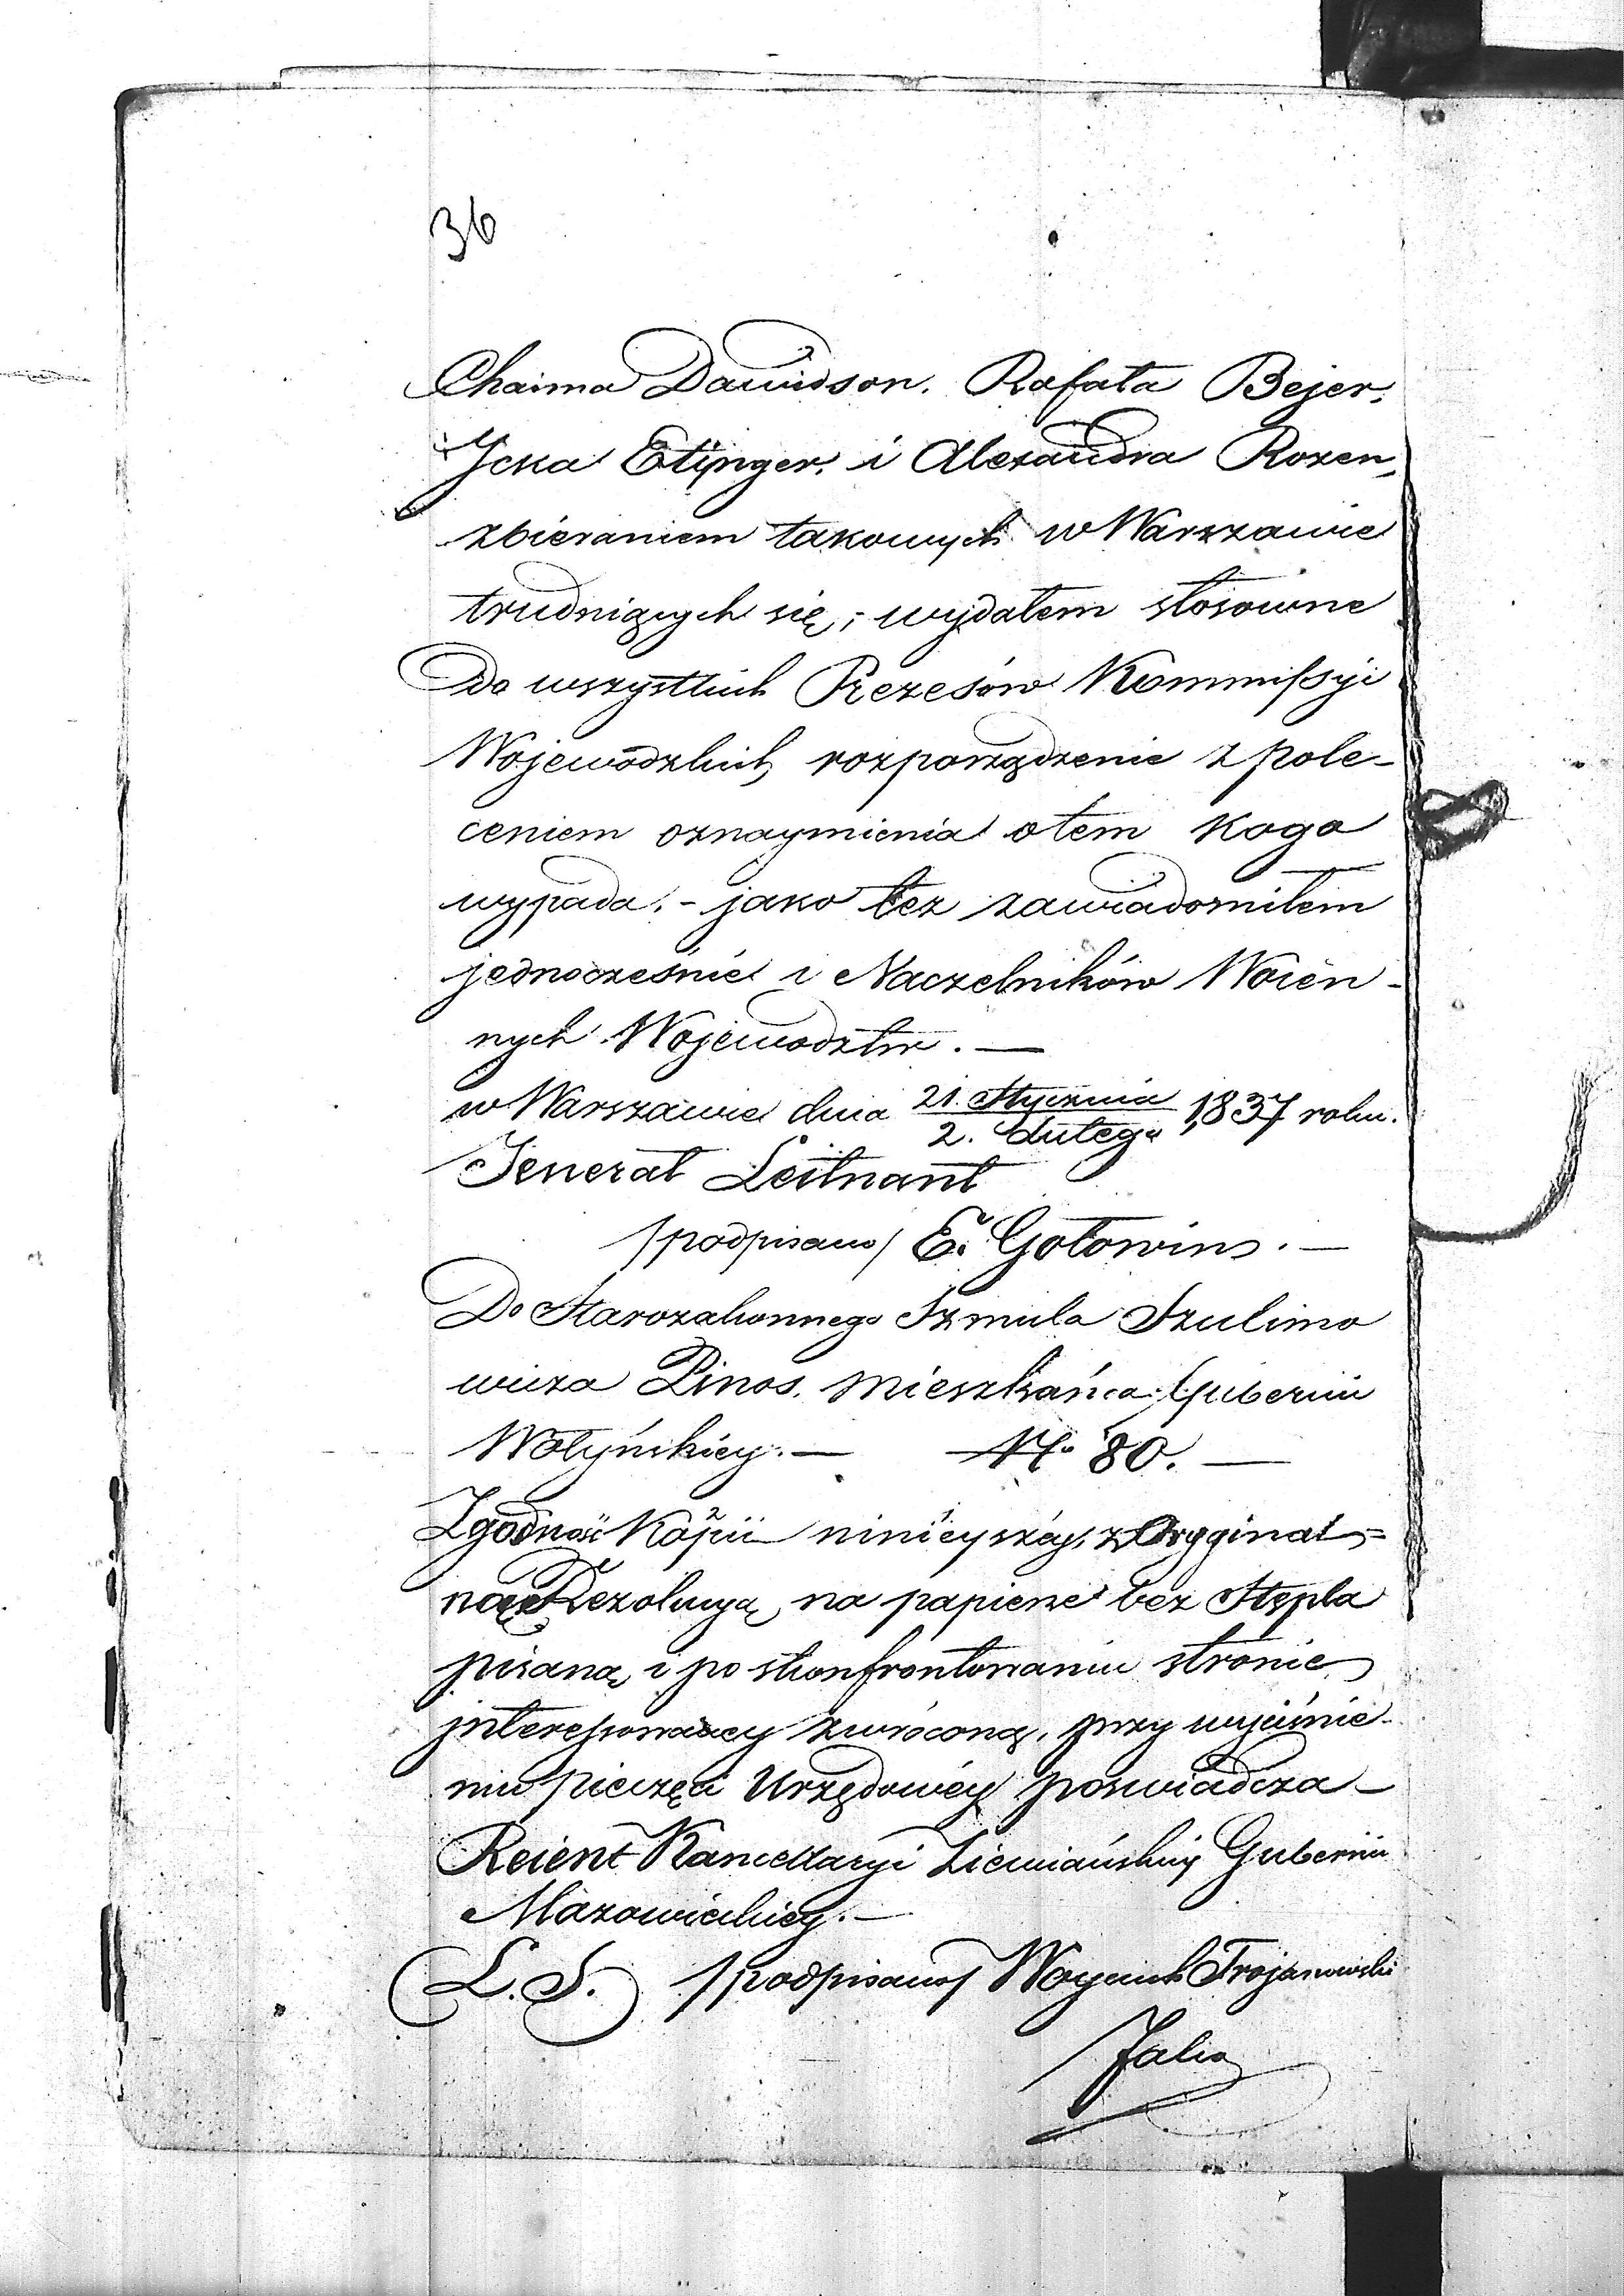 36
Chaima Dawidson. Rafała Bejer.
Icka Etynger. i Alexandra Rozen,
zbieraniem takowych w Warszawie
trudniących się; wydałem stosowne
do wszystkich Prezesów Kommissyi
Wojewódzkich rozporządzenie z pole-
ceniem oznaymienia o tem kogo
wypada. - jako też zawiadomiłem
jednocześnie i Naczelników Woien-
nych Województw. —
w Warszawie dnia 21. Stycznia / 2. Lutego 1837 roku.
Jenerał Leitnant
/podpisano/ E. Gołowin. —
Do Starozakonnego Szmula Szulimo
wicza Pinos. Mieszkańca Gubernii
Wołyńskiey. — No 80. —
Zgodność Kopii ninieyszéy, z Oryginal=
ną Rezolucyą, na papierze bez Stępla
pisaną i po skonfrontowaniu stronie
interessowaney zwróconą, przy wyciśnie-
niu pieczęci Urzędowéy poswiadcza —
Reient Kancellaryi Ziemiańskiey Gubernii
Mazowieckiey. —
L. S. /podpisano/ Woyciech Trojanowski